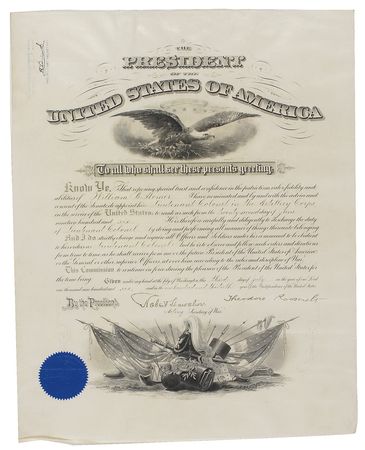 THE
PRESIDENT
OF THE
UNITED STATES OF AMERICA
To all who shall see these presents greeting:
Know Ye, That reposing special trust and confidence in the patriotism, valor, fidelity and
abilities of William I have nominated, and by and with the advice and
consent of the Senate do appoint him Lieutenant Colonel in the Artillery Corps
in the service of the United States: to rank as such from the day of June
nineteen hundred and six He is therefore carefully and diligently to discharge the duty
of Lieutenant Colonel by doing and performing all manner of things thereunto belonging.
And I do strictly charge and require all Officers and Soldiers under his command to be obedient
to his orders as Lieutenant Colonel And he is to observe and follow such orders and directions
from time to time as he shall receive from me or the future President of the United States of America
or the General or other superior Officers set over him according to the rules and discipline of War.
This Commission to continue in force during the pleasure of the President of the United States for
the time being. Given under my hand at the City of Washington this day of July in the year of our Lord
one thousand nine hundred and and in the one hundred and of the Independence of the United States.
By the President:
Theodore Roosevelt
Robert Shaw Oliver
Acting Secretary of War.